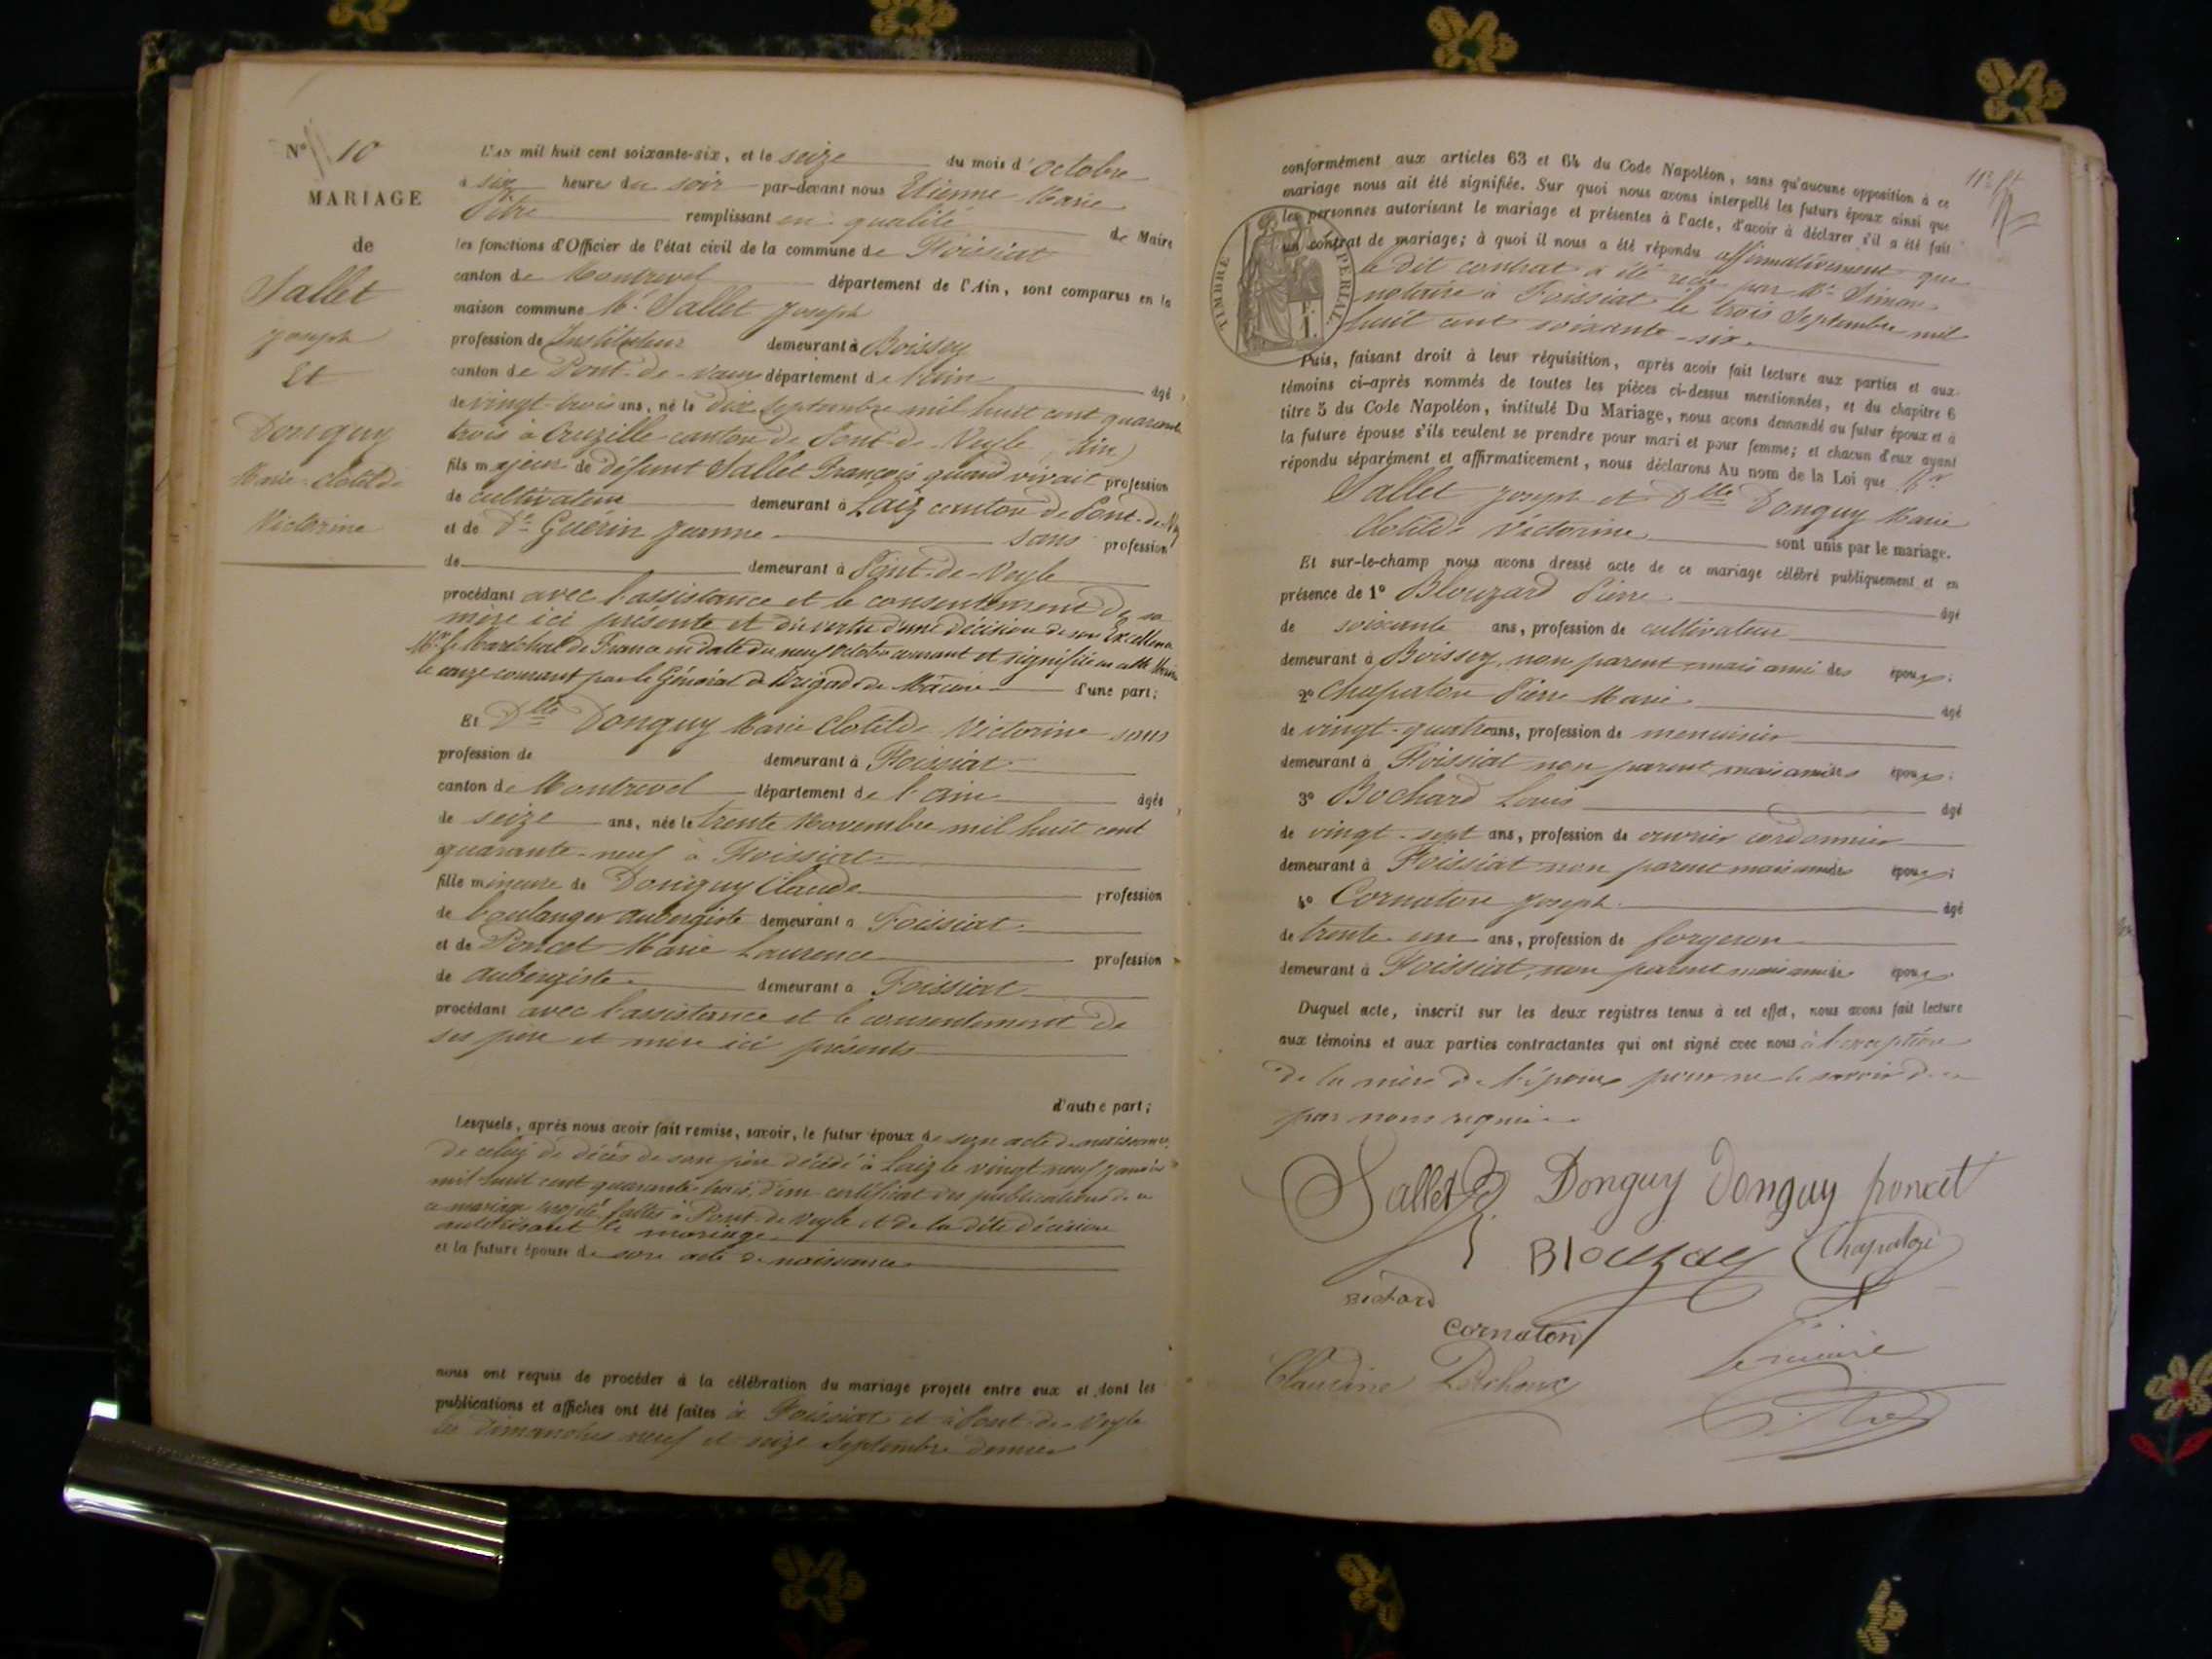 N° 10
MARIAGE
de
Sallet
Joseph
Et
Donguy
Marie-Clotilde
Victorine
L'AN mil huit cent soixante-six, et le seize du mois d'octobre
à six heures du soir par-devant nous Etienne Marie
Pitre remplissant en qualité de Maire
les fonctions d'Officier de l'état civil de la commune de Foissiat
canton de Montrevel département de l'Ain, sont comparus en la
maison commune Mr Sallet Joseph
profession de Instituteur demeurant à Boissey
canton de Pont-de-Vaux département de l'ain âgé
de vingt-trois ans, né le dix septembre mil huit cent quarante
trois à Cruzille canton de Pont-de-Veyle (Ain)
fils majeur de défunt Sallet François quand vivait profession
de cultivateur demeurant à Laiz canton de Pont-de-Vey
et de De Guérin Jeanne sans profession
de demeurant à Pont-de-Veyle
procédant avec l'assistance et le consentement de sa
mère ici présente et en vertu d'une décision de son Excellence
Mr le Maréchal de France en date du neuf octobre courant et signifiée au dit
le onze courant par le Général de Brigade de Mâcon d'une part;
Et Dlle Donguy Marie Clotilde Victorine sans
profession de demeurant à Foissiat
canton de Montrevel département de l'ain âgée
de seize ans, née le trente Novembre mil huit cent
quarante-neuf à Foissiat
fille mineure de Donguy Claude profession
de boulanger aubergiste demeurant à Foissiat
et de Poncet Marie Laurence profession
de aubergiste demeurant à Foissiat
procédant avec l'assistance et le consentement de
ses père et mère ici présents
d'autre part;
Lesquels, après nous avoir fait remise, savoir, le futur époux de son acte de naissance,
de celui de décès de son père décédé à Laiz le vingt neuf janvier
mil huit cent quarante trois, d'un certificat des publications de
ce mariage projeté faites à Pont de Veyle et de la dite décision
autorisant le mariage
et la future épouse de son acte de naissance
nous ont requis de procéder à la célébration du mariage projeté entre eux et dont les
publications et affiches ont été faites à Foissiat et à Pont-de-Veyle
les dimanches neuf et seize Septembre dernier
conformément aux articles 63 et 64 du Code Napoléon, sans qu'aucune opposition à ce
mariage nous ait été signifiée. Sur quoi nous avons interpellé les futurs époux ainsi que
les personnes autorisant le mariage et présentes à l'acte, d'avoir à déclarer s'il a été fait
un contrat de mariage; à quoi il nous a été répondu affirmativement que
le dit contrat a été reçu par Me Simon
notaire à Foissiat le trois Septembre mil
huit cent soixante-six.
TIMBRE IMPERIAL
Puis, faisant droit à leur réquisition, après avoir fait lecture aux parties et aux
témoins ci-après nommés de toutes les pièces ci-dessus mentionnées, et du chapitre 6
titre 5 du Code Napoléon, intitulé Du Mariage, nous avons demandé au futur époux et à
la future épouse s'ils veulent se prendre pour mari et pour femme; et chacun d'eux ayant
répondu séparément et affirmativement, nous déclarons Au nom de la Loi que Mr
Sallet Joseph et Dlle Donguy Marie
Clotilde Victorine sont unis par le mariage.
Et sur-le-champ nous avons dressé acte de ce mariage célébré publiquement et en
présence de 1° Blouzard Pierre âgé
de soixante ans, profession de cultivateur
demeurant à Boissey, non parent mais ami des époux;
2° Chapaton Pierre Marie âgé
de vingt-quatre ans, profession de menuisier
demeurant à Foissiat non parent mais ami des époux;
3° Bochard Louis âgé
de vingt-sept ans, profession de ouvrier cordonnier
demeurant à Foissiat non parent mais ami des époux;
4° Cornaton Joseph âgé
de trente un ans, profession de forgeron
demeurant à Foissiat, non parent mais ami des époux
Duquel acte, inscrit sur les deux registres tenus à cet effet, nous avons fait lecture
aux témoins et aux parties contractantes qui ont signé avec nous à l'exception
de la mère de l'époux pour ne le savoir de ce
par nous requise.
Sallet J. Donguy Donguy poncet
Blouzard Chapaton
Bochard
Cornaton
Claudine
Le maire
Pitre